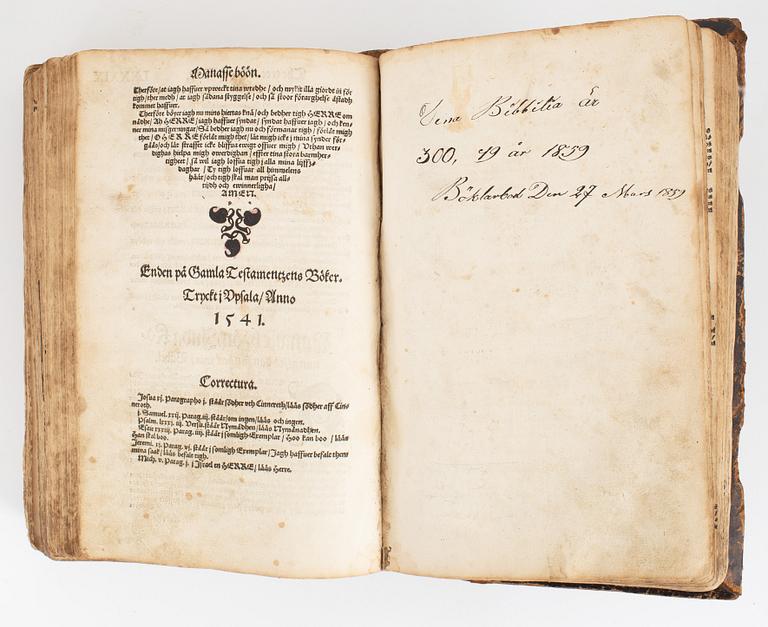 Manasse böön.
Therföre/at iagh haffuer vpweckt tina wredhe/och mykit illa giordt in för
tigh/ther medh/at iagh sådana styggelse/och så stoor förarghelse åstadh
kommet haffuer.
Therföre böyer iagh nu mins hiertas knä/och bedher tigh HERRE om
nådhe/Ah HERRE/iagh haffuer syndat/syndat haffuer iagh/och kens
ner mina misgerningar/Så bedher iagh nu och förmanar tigh/förlåt migh
thet/O HERRE förlåt migh thet/låt migh icke j mina synder för-
gåås/och låt straffet icke bliffua ewigt offuer migh/Vthan wer-
dighas hielpa migh owerdighan/effter tina stora barmher-
tigheet/så wil iagh loffua tigh j alla mina lijffs-
daghar/Ty tigh loffuar all himmelens
häär/och tigh skal man prijsa all-
tijdh och ewinnerligha/
AMEN.
Enden på Gamla Testamentzens Böker.
Tryckt j Vpsala/Anno
1541.
Correctura.
Josua xj. Paragrapho j. ståår södher vth Cinnereth/lääs södher aff Cin-
neroth.
j. Samuel. xxij. Parag. iij. ståår/om ingen/lääs och ingen.
Psalm. lxxxj. iij. Versu. ståår Nymådhen/lääs Nymånadhen.
Esaie xxxiij. Parag. iiij. ståår j somligh Exemplar/Hoo kan boo/lääs
Han skal boo.
Jeremi. xj. Parag. vj. ståår j somligh Exemplar/Jagh haffuer befalt them
mina saak/lääs befalt tigh.
Mich. v. Parag. j. j Israel en HERRE/lääs Herre.
Dena Bibbilia är
300, 19 år 1859
Böklarbod Den 27 Mars 1859